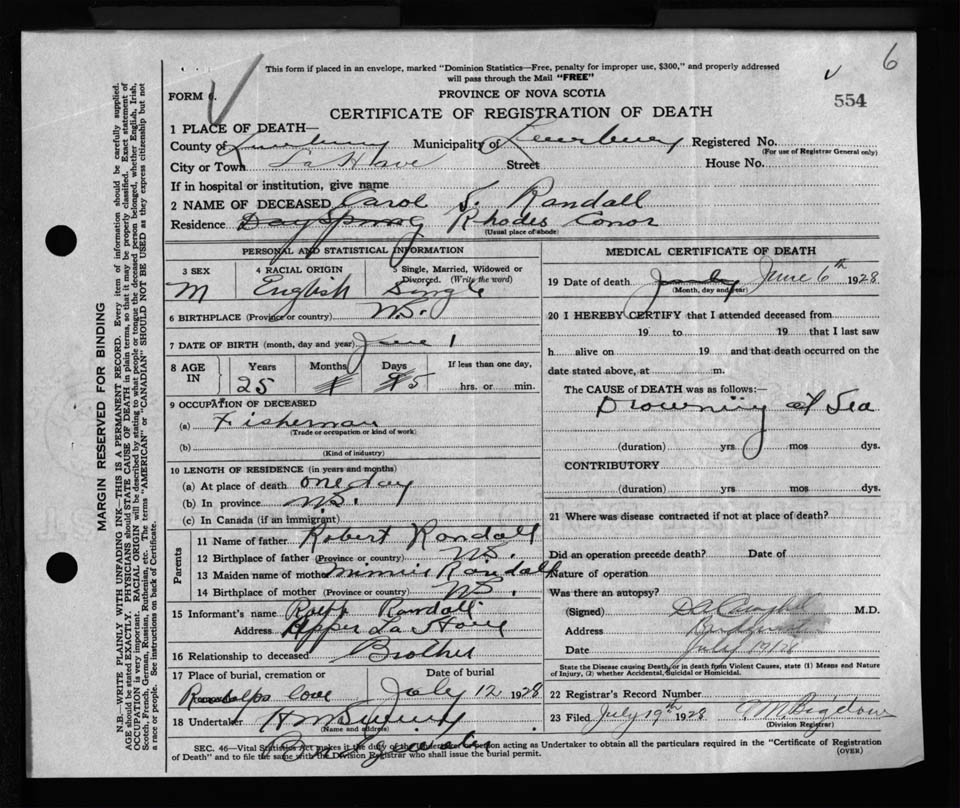 6
This form if placed in an envelope, marked "Dominion Statistics—Free, penalty for improper use, $300," and properly addressed
will pass through the Mail "FREE"
FORM 6.
PROVINCE OF NOVA SCOTIA
554
CERTIFICATE OF REGISTRATION OF DEATH
1 PLACE OF DEATH—
County of Lunenburg Municipality of Lunenburg Registered No.
(For use of Registrar General only)
City or Town La Have Street House No.
If in hospital or institution, give name
2 NAME OF DECEASED Carol S. Randall
Residence Dayspring Rhodes Conor
(Usual place of abode)
PERSONAL AND STATISTICAL INFORMATION
3 SEX 4 RACIAL ORIGIN 5 Single, Married, Widowed or
Divorced. (Write the word)
M English Single
6 BIRTHPLACE (Province or country) N.S.
7 DATE OF BIRTH (month, day and year) June 1
8 AGE IN Years Months Days If less than one day,
25 5 hrs. or min.
9 OCCUPATION OF DECEASED
(a) Fisherman
(Trade or occupation or kind of work)
(b)
(Kind of industry)
10 LENGTH OF RESIDENCE (in years and months)
(a) At place of death one day
(b) In province N.S.
(c) In Canada (if an immigrant)
Parents
11 Name of father Robert Randall
12 Birthplace of father (Province or country) N.S.
13 Maiden name of mother Minnie Randall
14 Birthplace of mother (Province or country) N.S.
15 Informant's name Ralph Randall
Address Upper La Have
16 Relationship to deceased Brother
17 Place of burial, cremation or Date of burial
Randolps Cove July 12 1928
18 Undertaker
(Name and address)
MEDICAL CERTIFICATE OF DEATH
19 Date of death June 6th 1928
(Month, day and year)
20 I HEREBY CERTIFY that I attended deceased from
19 to 19 that I last saw
h alive on 19 and that death occurred on the
date stated above, at m.
The CAUSE of DEATH was as follows:—
Drowning at Sea
(duration) yrs. mos dys.
CONTRIBUTORY
(duration) yrs. mos dys.
21 Where was disease contracted if not at place of death?
Did an operation precede death? Date of
Nature of operation
Was there an autopsy?
(Signed) M.D.
Address
Date July 19/28
State the Disease causing Death, or in death from Violent Causes, state (1) Means and Nature
of Injury, (2) whether Accidental, Suicidal or Homicidal.
22 Registrar's Record Number
23 Filed July 19th 1928
(Division Registrar)
SEC. 46—Vital Statistics Act makes it the duty of the Undertaker or person acting as Undertaker to obtain all the particulars required in the "Certificate of Registration
of Death" and to file the same with the Division Registrar who shall issue the burial permit.
(OVER)
MARGIN RESERVED FOR BINDING
N.B.—WRITE PLAINLY WITH UNFADING INK—THIS IS A PERMANENT RECORD. Every item of information should be carefully supplied.
AGE should be stated EXACTLY. PHYSICIANS should STATE CAUSE OF DEATH in plain terms, so that it may be properly classified. Exact statement of
OCCUPATION is very important. RACIAL ORIGIN will be described by stating to what people or tongue the deceased person belonged, whether English, Irish,
Scotch, French, German, Russian, Ruthenian, etc. The terms "AMERICAN" or "CANADIAN" SHOULD NOT BE USED as they express citizenship but not
a race or people. See instructions on back of Certificate.